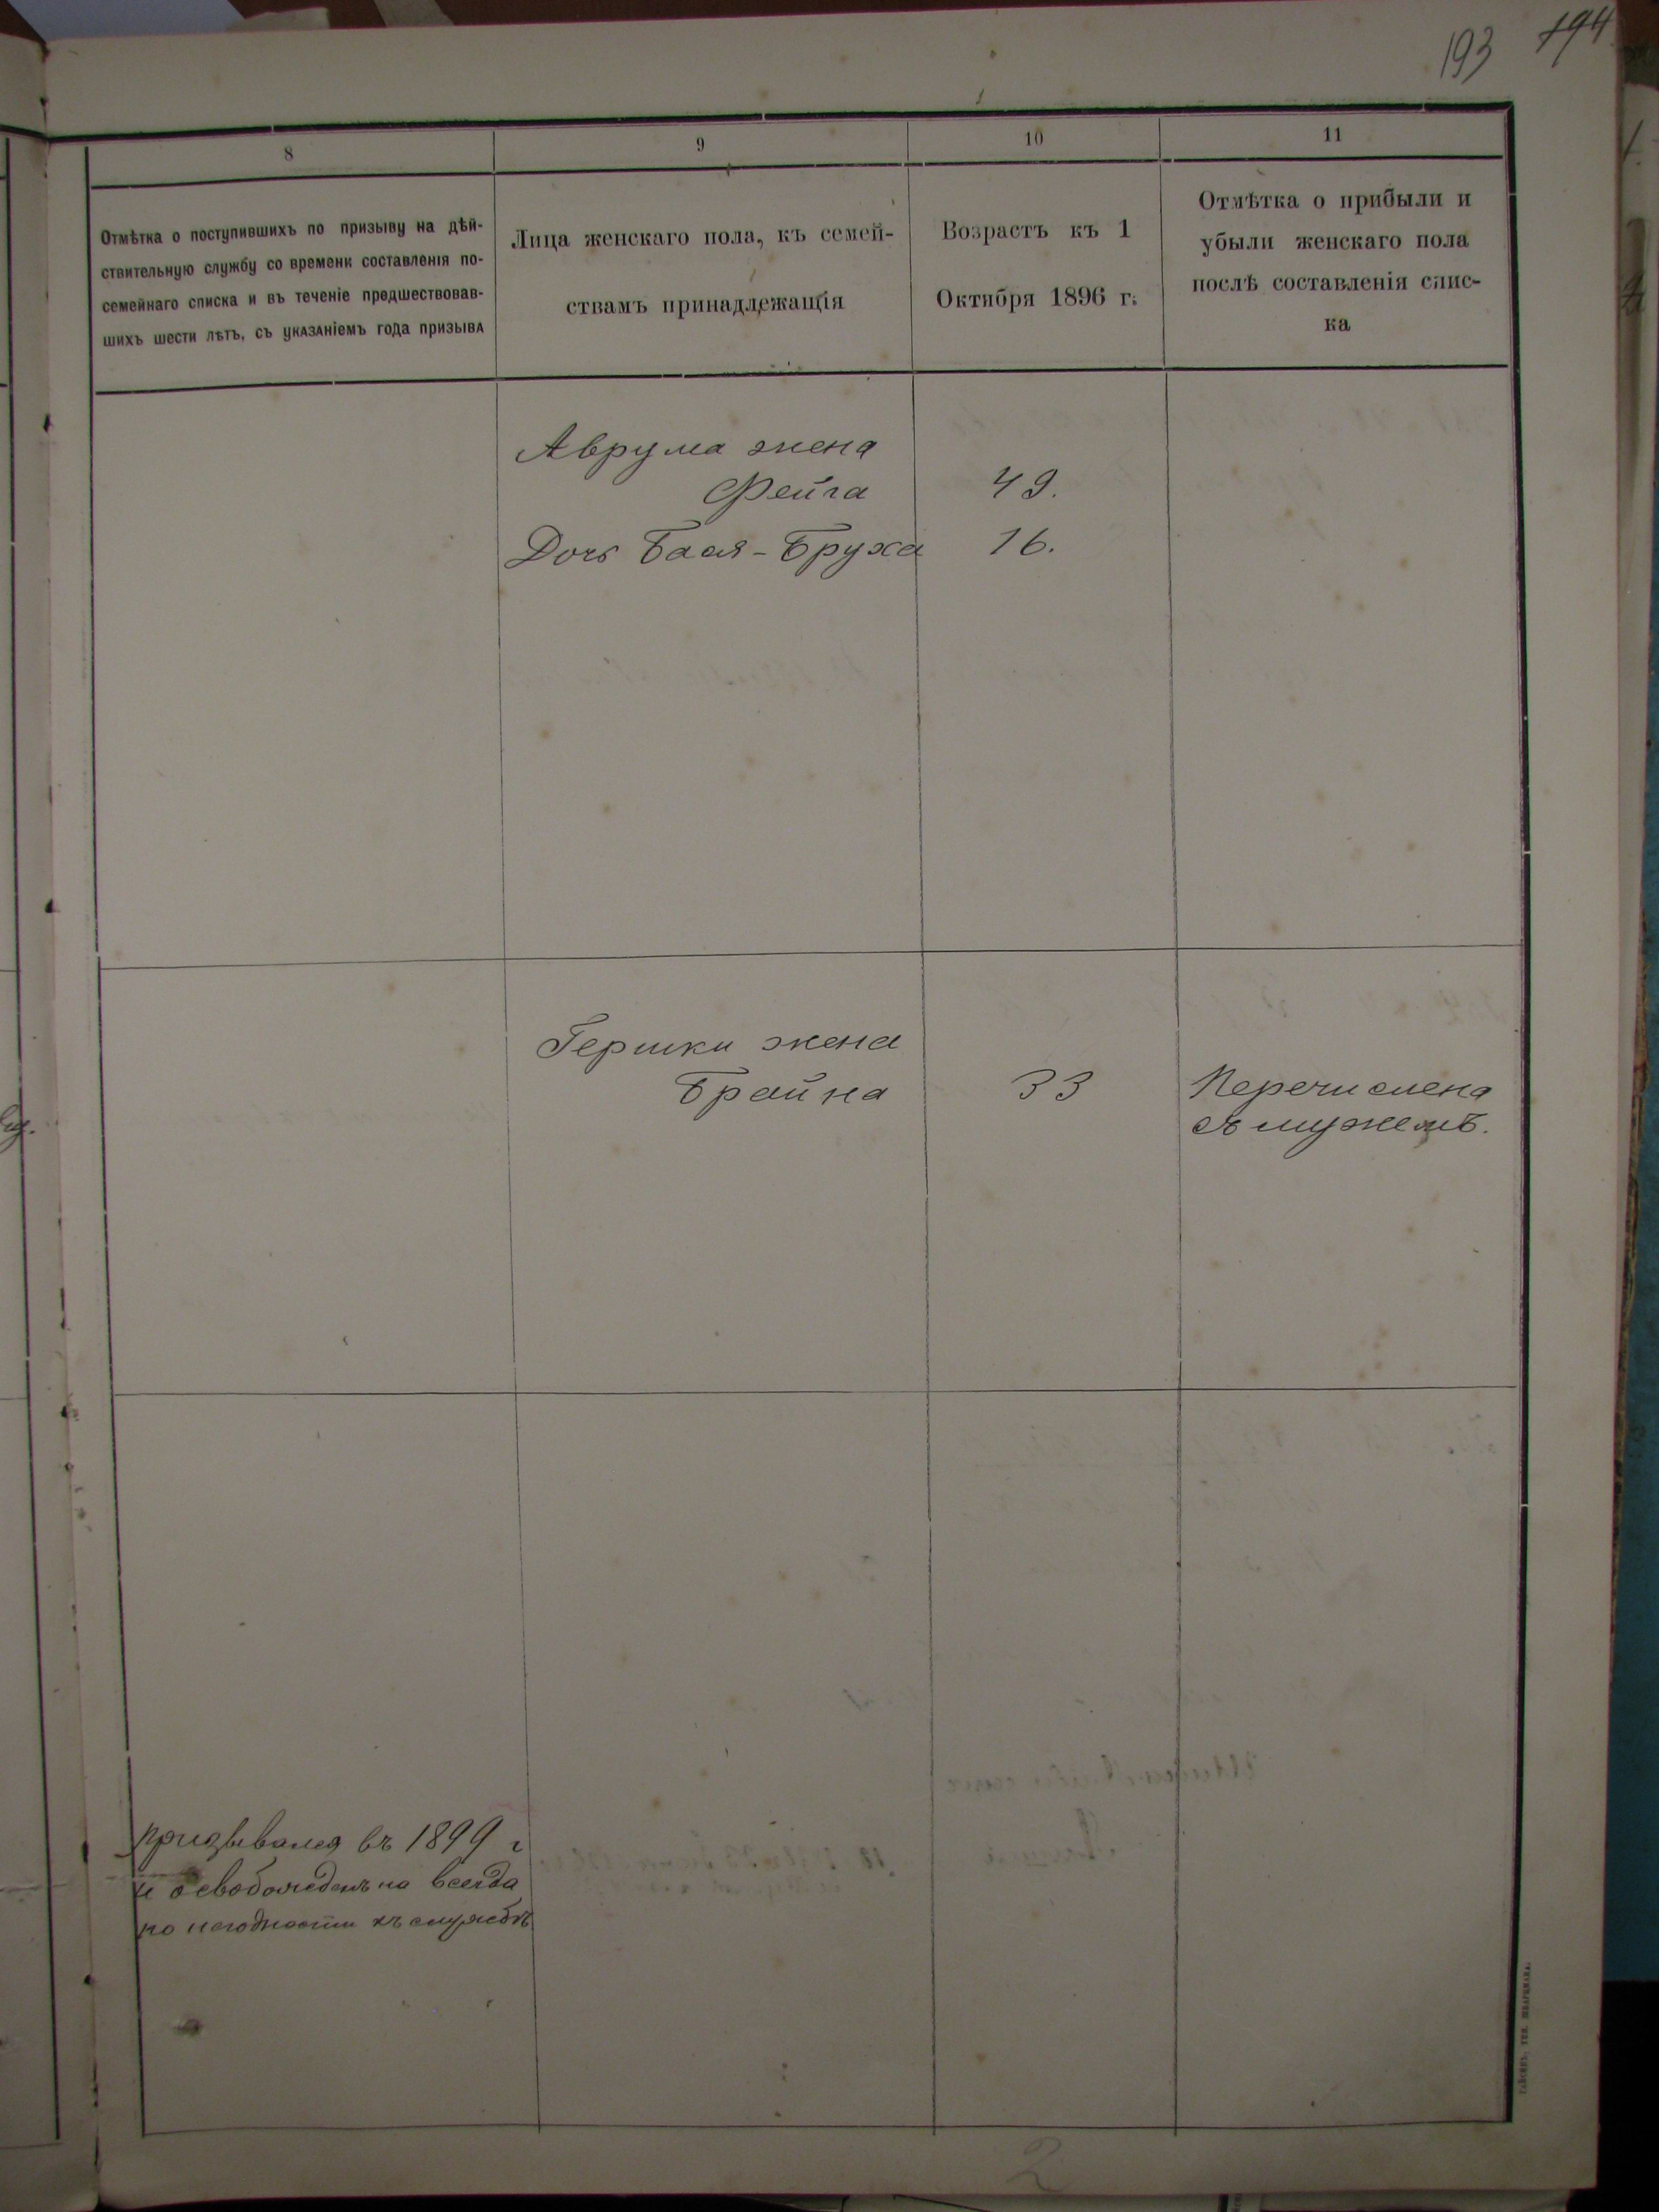 193 194
8
9
10
11
Отмѣтка о поступившихъ по призыву на дѣй-
ствительную службу со времени составленія по-
семейнаго списка и въ теченіе предшествовав-
шихъ шести лѣтъ, съ указаніемъ года призыва
Лица женскаго пола, къ семей-
ствамъ принадлежащія
Возрастъ къ 1
Октября 1896 г.
Отмѣтка о прибыли и
убыли женскаго пола
послѣ составленія спис-
ка
Аврума жена
Фейга 49.
Дочь Бася-Бруха 16.
Гершки жена
Брайна 33
Перечислена
съ мужемъ.
призывался въ 1899 г
и освобожденъ на всегда
по негодности къ службѣ